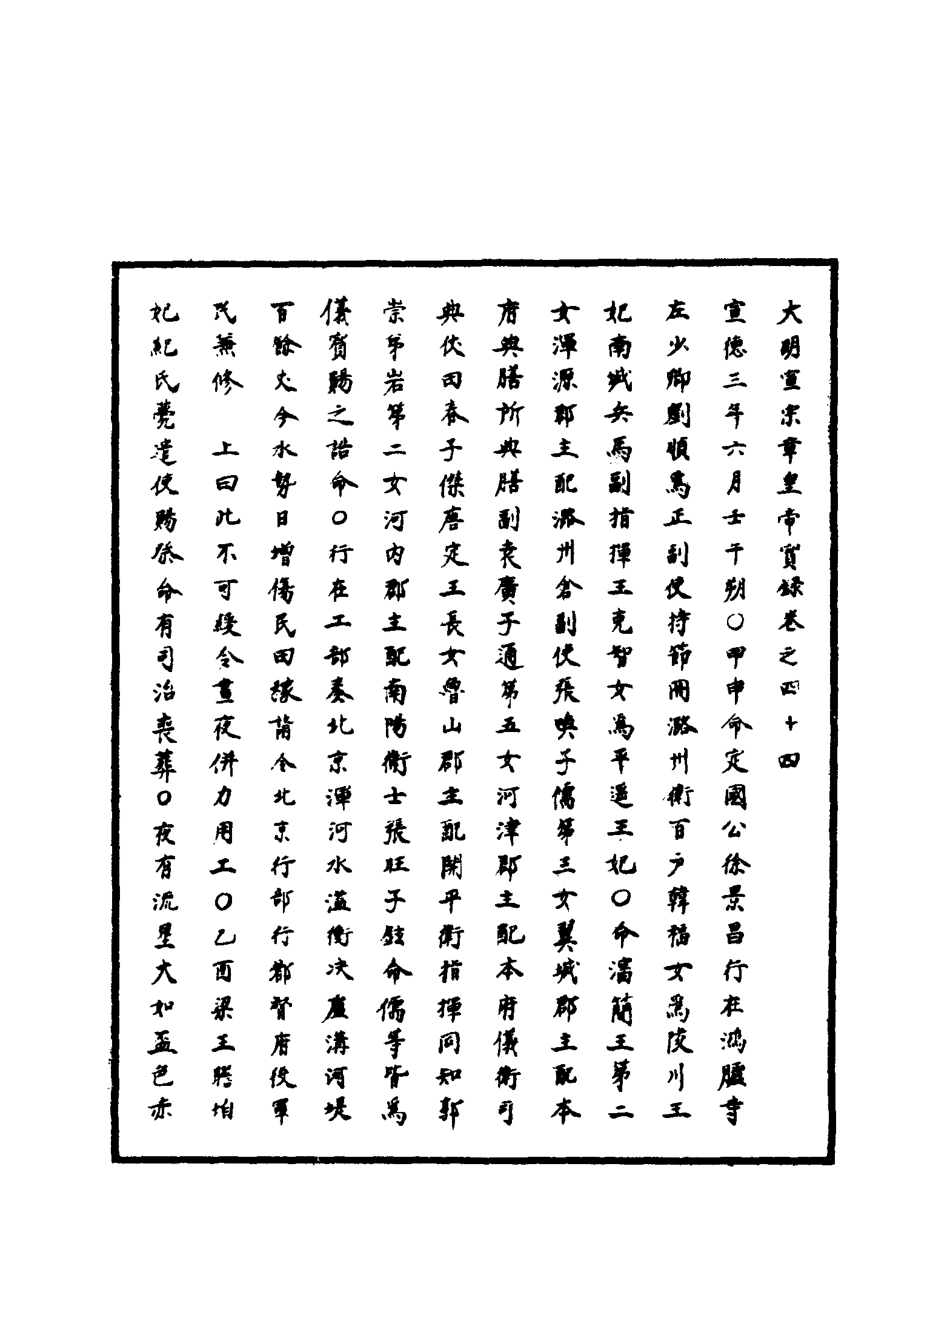 大明宣宗章皇帝實録卷之四十四
宣德三年六月壬午朔○甲申命定國公徐景昌行在鴻臚寺
左少卿劉順爲正副使持節冊潞州衛百户韓福女爲陵川王
妃南城兵馬副指揮王克智女爲平遥王妃○命瀋簡王第二
女渾源郡主配潞州倉副使張㬇子儒第三女翼城郡主配本
府典膳所典膳副袁廣子通第五女河津郡主配本府儀衛司
典仗田春子傑唐定王長女魯山郡主配開平衛指揮同知郭
崇弟岩第二女河内郡主配南陽衛士張旺子鉉命儒等皆爲
儀賓賜之誥命○行在工部奏北京渾河水溢衝决盧溝河堤
百餘丈今水勢日增傷民田稼請令北京行部行都督府役軍
民兼修　上曰此不可緩令晝夜併力用工○乙酉梁王瞻垍
妃紀氏薨遣使賜祭命有司治喪葬○夜有流星大如盃色赤